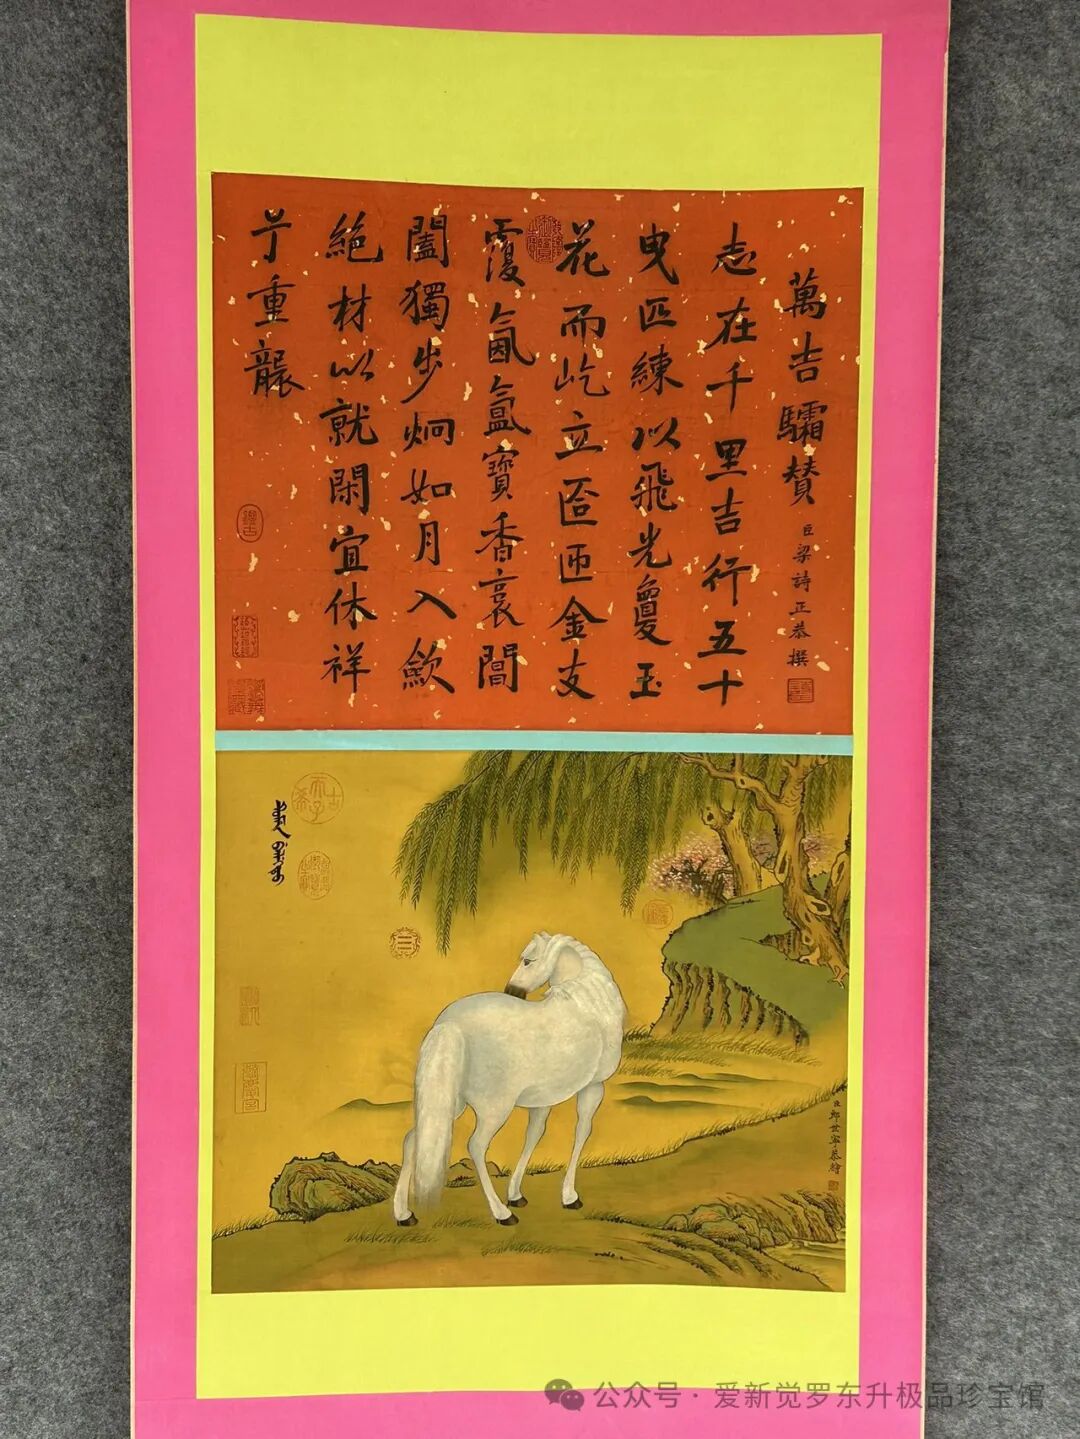 萬吉驦赞
臣梁詩正恭撰
志在千里吉行五十
曳匹練以飛光敻玉
花而屹立匼匝金支
霞氤氳寶香裛閶
闔獨步炯如月入歘
絶材以就閑宜休祥
重
古希天子
三
臣郎世寧恭繪
公众号·爱新觉罗东升极品珍宝馆